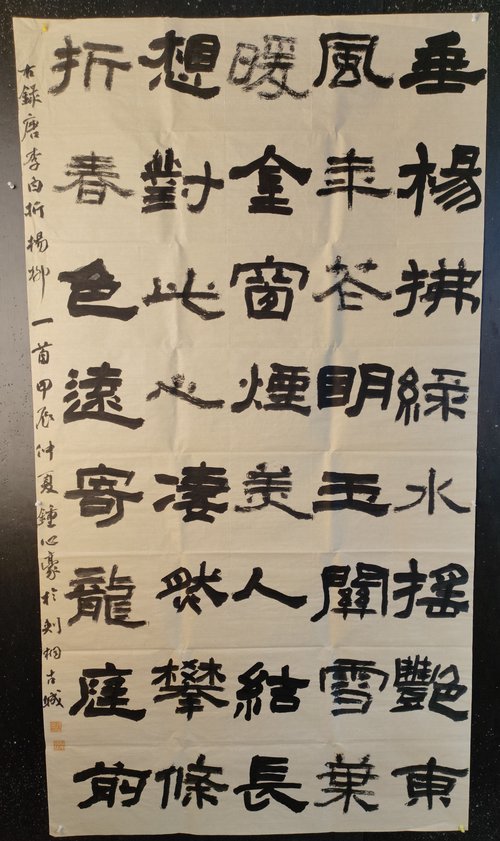 垂楊拂綠水搖艷東
風年花明玉關雪葉
暖金窗煙美人結長
想對此心淒然攀條
折春色遠寄龍庭前
右錄唐李白折楊柳一首甲辰仲夏鍾心豪於刺桐古城